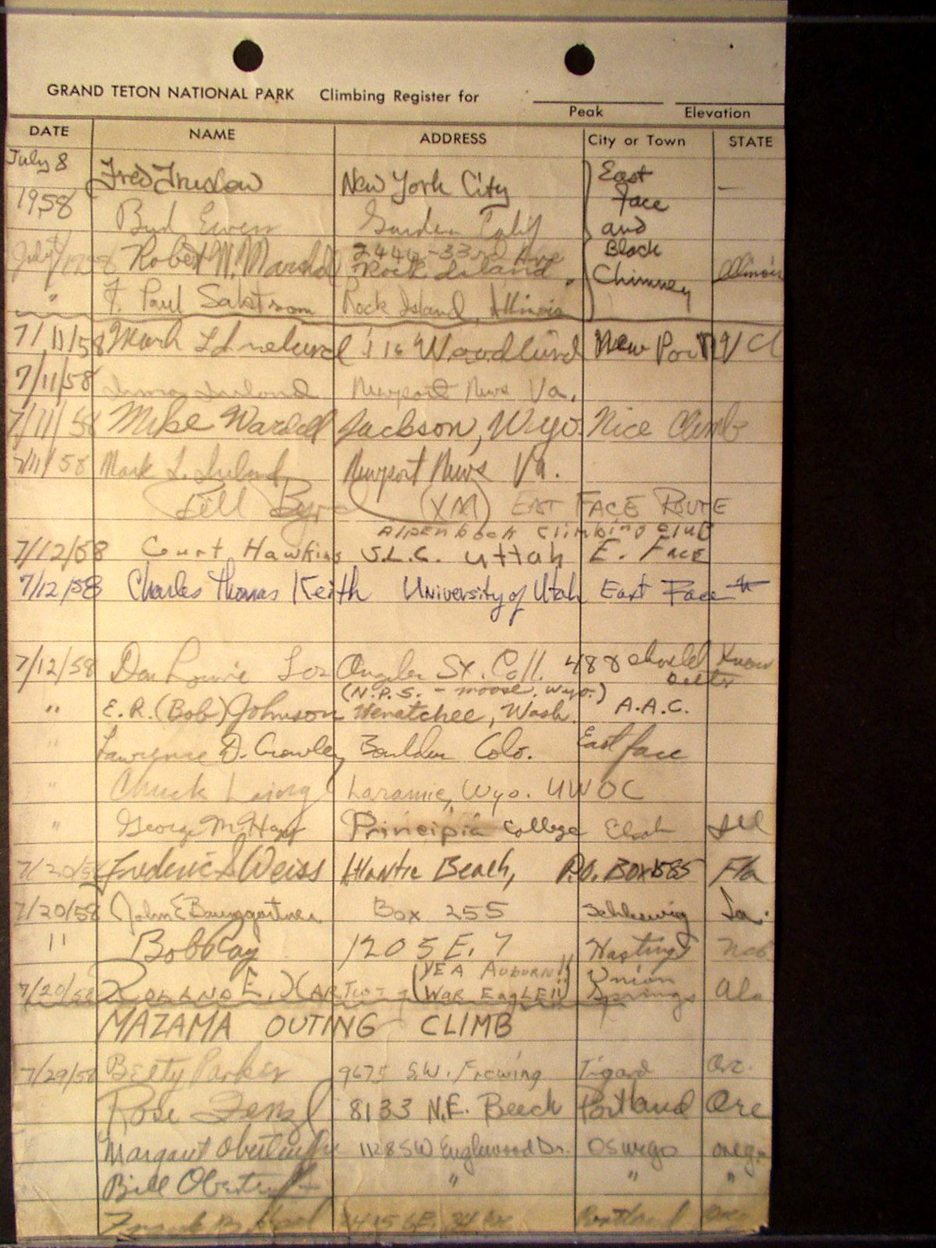 GRAND TETON NATIONAL PARK Climbing Register for
Peak Elevation
DATE NAME ADDRESS City or Town STATE
July 8 Fred Truslow New York City East
1958 Bud Garden Calif Face and
Robert W. 2440-33rd Ave Rock Island Block Illinois
" F. Paul Rock Island, Illinois Chimney
7/11/58 Mark 116 New Port
7/11/58 Newport News Va.
7/11/58 Mike Wardell Jackson, Wyo. Nice Climb
7/11/58 Mark L. Newport News Va.
Bill Byrd (XM) EAST FACE ROUTE
Alpenbock climbing club
7/12/58 Court Hawkins S.L.C. uttah E. FACE
7/12/58 Charles Thomas Keith University of Utah East Face
7/12/58 Don Los Angeles St. Coll. 488 should Know Better
(N.P.S. - moose, wyo.)
" E.R. (Bob) Johnson Wenatchee, Wash. A.A.C.
" Lawrence D. Crowley Boulder Colo. East face
" Chuck Laramie, Wyo. UWOC
" George M. Principia College Elsah Ill
7/20/58 Frederic S Weiss Atlantic Beach, P.O. Box 585 Fla
7/20/58 John E Baumgartner Box 255 Schleswig Ia.
11 Bob Ray 1205 E. 7 Hastings Neb
7/20/58 ROLAND E. (YEA AUBURN!! WAR EAGLE!!) Union Springs Ala
MAZAMA OUTING CLIMB
7/29/58 Betty Parker 9675 S.W. Frewing Tigard Ore.
Rose 8133 N.E. Beech Portland Ore
Margaret 1128 SW Englewood Dr. Oswego oreg.
Bill " " "
Frank Portland